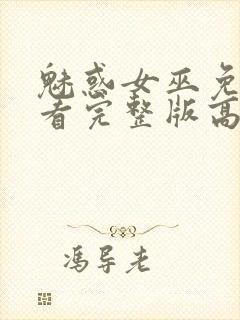 魅惑女巫免
看完整版高
冯导老